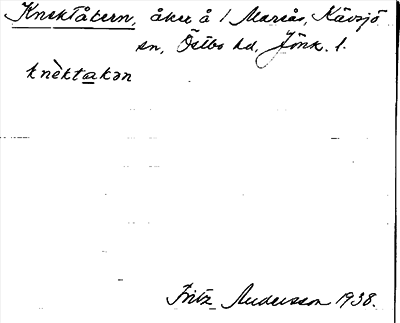 Knektåkern, åker å 1 Marås, Kävsjö
sn, Östbo hd, Jönk. l.
knèktakən
Fritz Andersson 1938.